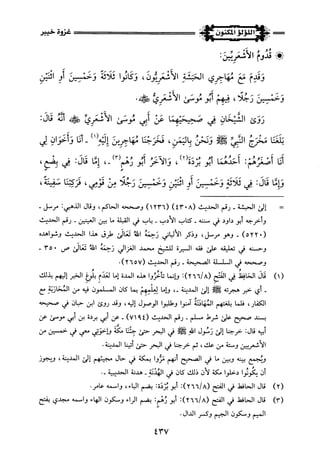 اللؤلؤ المكنون
غزوة خيبر
* قُدُومُ الْأَشْعَرِيِّينَ:
وَقَدِمَ مَعَ مُهَاجِرِي الحَبَشَةِ الْأَشْعَرِيُّونَ، وَكَانُوا ثَلَاثَةً وَخَمْسِينَ أَوِ اثْنَيْنِ
وَخَمْسِينَ رَجُلًا، فِيهِمْ أَبُو مُوسَى الْأَشْعَرِيُّ ﷺ.
رَوَى الشَّيْخَانِ فِي صَحِيحَيْهِمَا عَنْ أَبِي مُوسَى الْأَشْعَرِيِّ أَنَّهُ قَالَ:
بَلَغَنَا مَخْرَجُ النَّبِيِّ ﷺ وَنَحْنُ بِاليَمَنِ، فَخَرَجْنَا مُهَاجِرِينَ إِلَيْهِ(١) - أَنَا وَأَخَوَانِ لِي
أَنَا أَصْغَرُهُمْ: أَحَدُهُمَا أَبُو بُرْدَةَ(٢)، وَالآخَرُ أَبُو رُهْمٍ(٣) -، إِمَّا قَالَ: فِي بِضْعٍ،
وَإِمَّا قَالَ: فِي ثَلَاثَةٍ وَخَمْسِينَ أَوِ اثْنَيْنِ وَخَمْسِينَ رَجُلًا مِنْ قَوْمِي، فَرَكِبْنَا سَفِينَةً،
= إلى الحبشة - رقم الحديث (٤٣٠٨) (١٢٣٦) وصححه الحاكم، وقال الذهبي: مرسل -
وأخرجه أبو داود في سننه - كتاب الأدب - باب في القبلة ما بين العينين - رقم الحديث
(٥٢٢٠) - وهو مرسل، وذكر الألباني رَحِمَهُ اللهُ تَعَالَى طرق هذا الحديث وشواهده
وحسنه في تعليقه على فقه السيرة للشيخ محمد الغزالي رَحِمَهُ اللهُ تَعَالَى ص ٣٥٠ -
وصححه في السلسلة الصحيحة - رقم الحديث (٢٦٥٧).
(١) قَالَ الحَافِظُ فِي الفَتْحِ (٢٦٦/٨): وإنما تأخَّرُوا هذه المدة إما لعَدَمِ بلُوغِ الخبر إليهم بذلك
- أي خبر هجرته ﷺ إلى المدينة -، وإما لِعِلْمِهِمْ بما كان المسلمون فيه من المُحَارَبَةِ مع
الكفار، فلما بلغتهم المُهَادَنَةُ آمنوا وطلبوا الوصول إليه، وقد روى ابن حبان في صحيحه
بسند صحيح على شرط مسلم - رقم الحديث (٧١٩٤) - عن أبي بردة بن أبي موسى عن
أبيه قال: خرجنا إلى رَسُولِ الله ﷺ في البحر حتى جِئْنَا مَكَّةَ وإخوتي معي في خمسين من
الأشعريين وستة من عك، ثم خرجنا في البحر حتى أتينا المدينة.
ويُجمع بينه وبين ما في الصحيح أنهم مَرُّوا بمكة في حال مجيئهم إلى المدينة، ويجوز
أن يكُونُوا دخلوا مكة لأن ذلك كان في الهُدْنَةِ - هدنة الحديبية -.
(٢) قال الحافظ في الفتح (٢٦٦/٨): أبو بُرْدَة: بضم الباء، واسمه عامر.
(٣) قال الحافظ في الفتح (٢٦٦/٨): أبو رُهْم: بضم الراء وسكون الهاء واسمه مجدي بفتح
الميم وسكون الجيم وكسر الدال.
٤٣٧